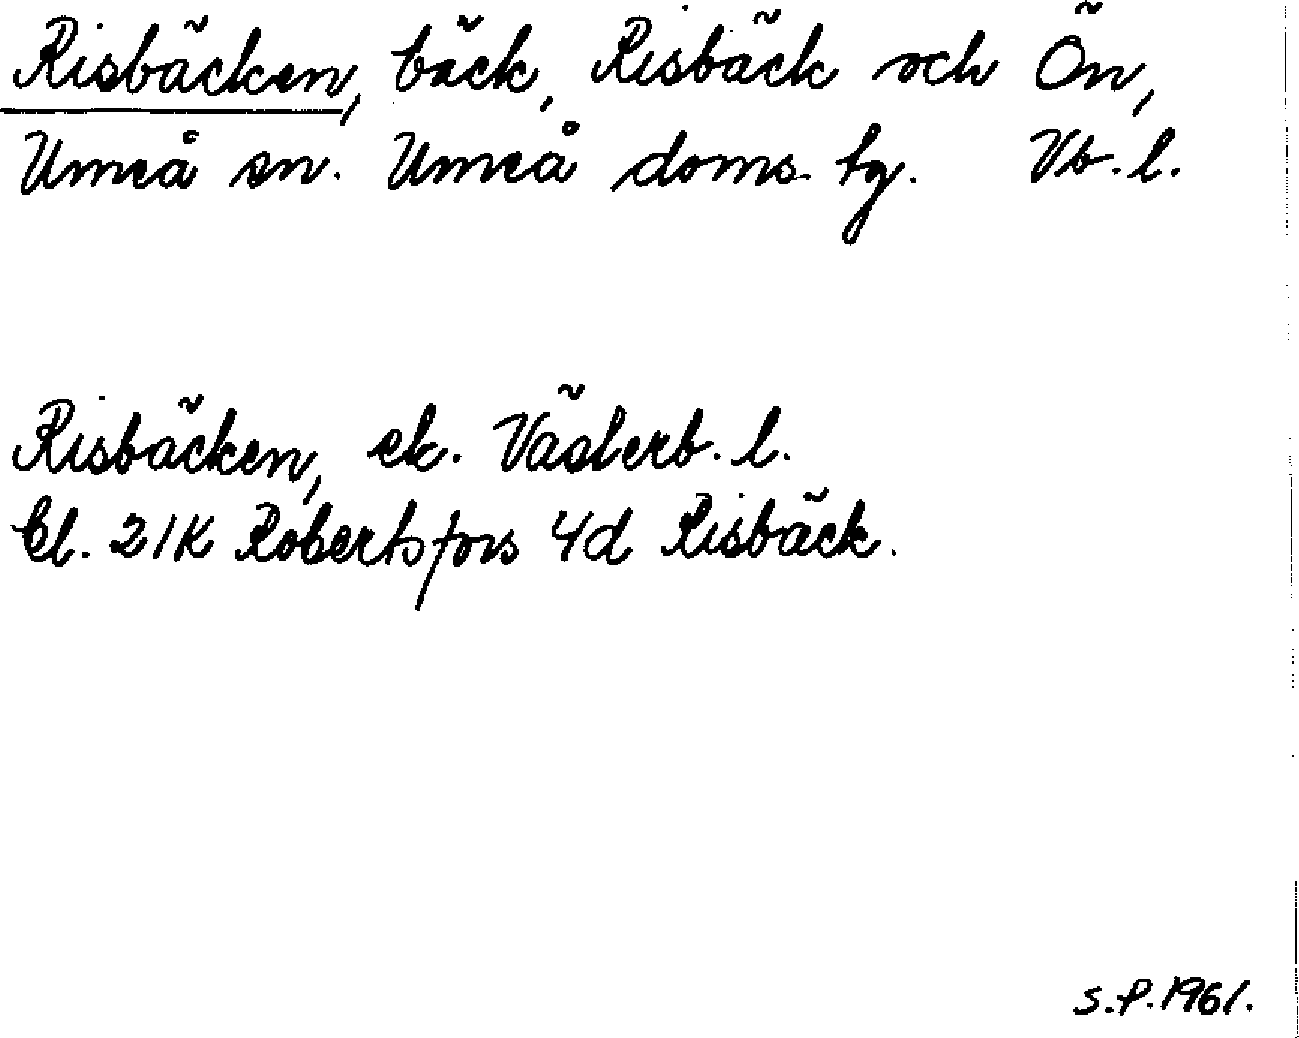 Risbäcken, bäck, Risbäck och Ön,
Umeå sn. Umeå doms. tg. Vb. l.
Risbäcken, ek. Västerb. l.
Bl. 21K Robertsfors 4d Risbäck.
S.P. 1961.